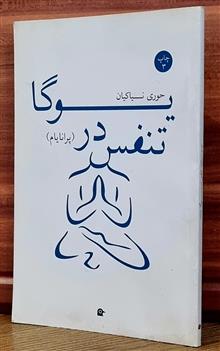 چاپ
۳
حوری نسیاکیان
یوگا
تنفس در
(پرانایام)